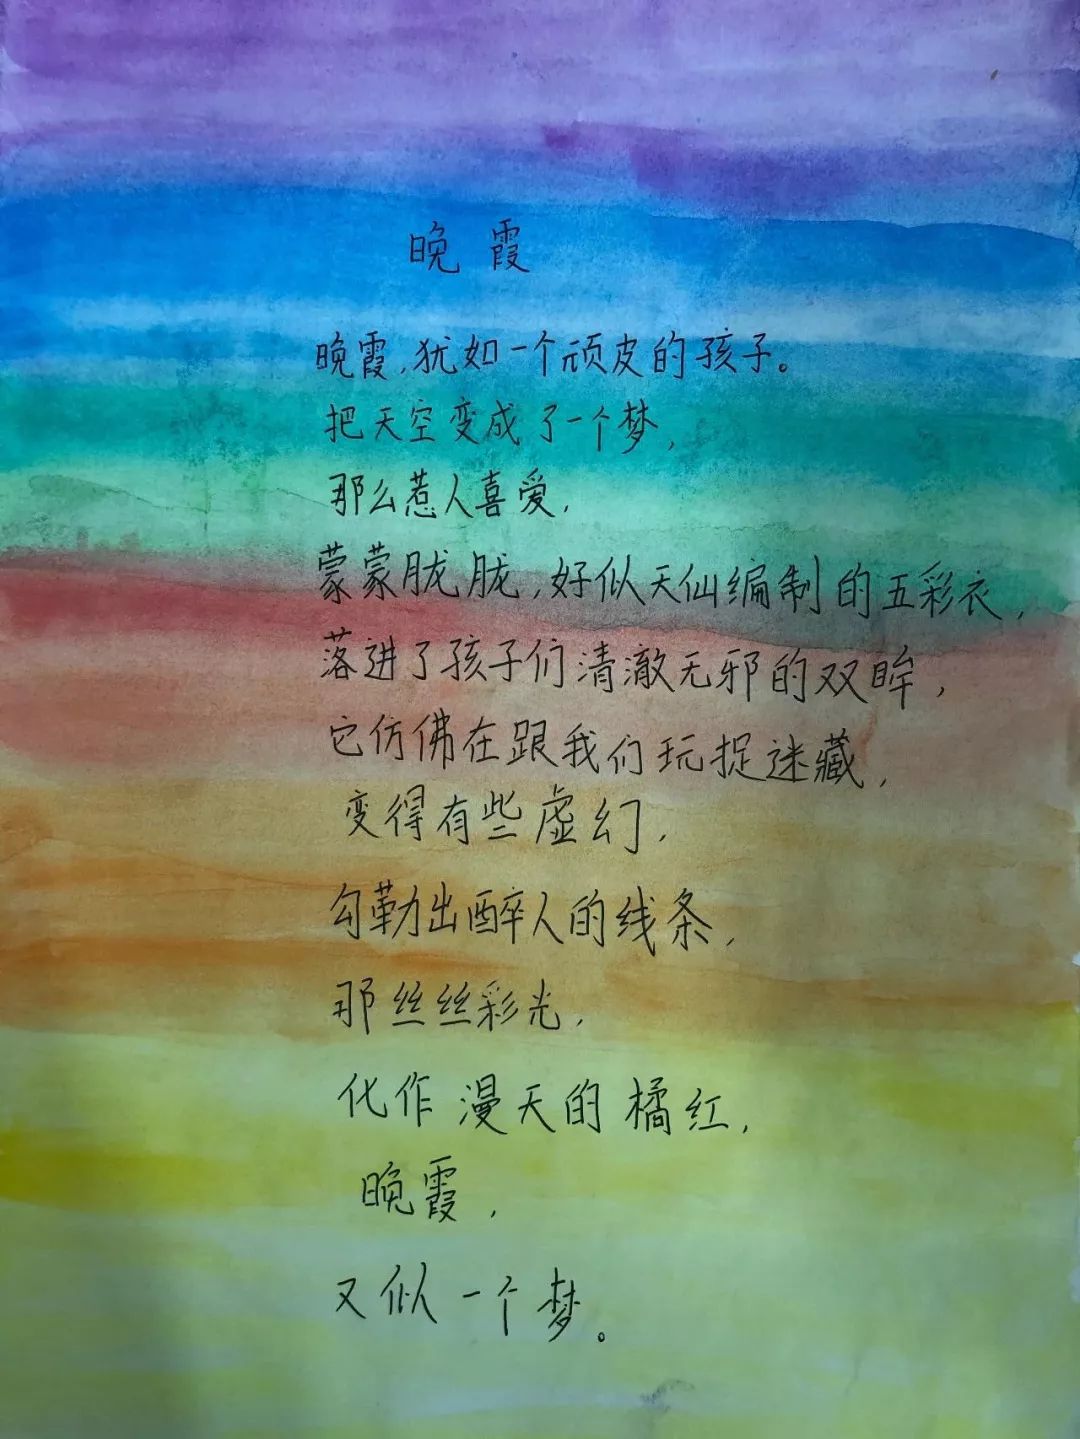 晚霞
晚霞,犹如一个顽皮的孩子。
把天空变成了一个梦,
那么惹人喜爱,
蒙蒙胧胧,好似天仙编制的五彩衣,
落进了孩子们清澈无邪的双眸,
它仿佛在跟我们玩捉迷藏,
变得有些虚幻,
勾勒出醉人的线条,
那丝丝彩光,
化作漫天的橘红,
晚霞,
又似一个梦。